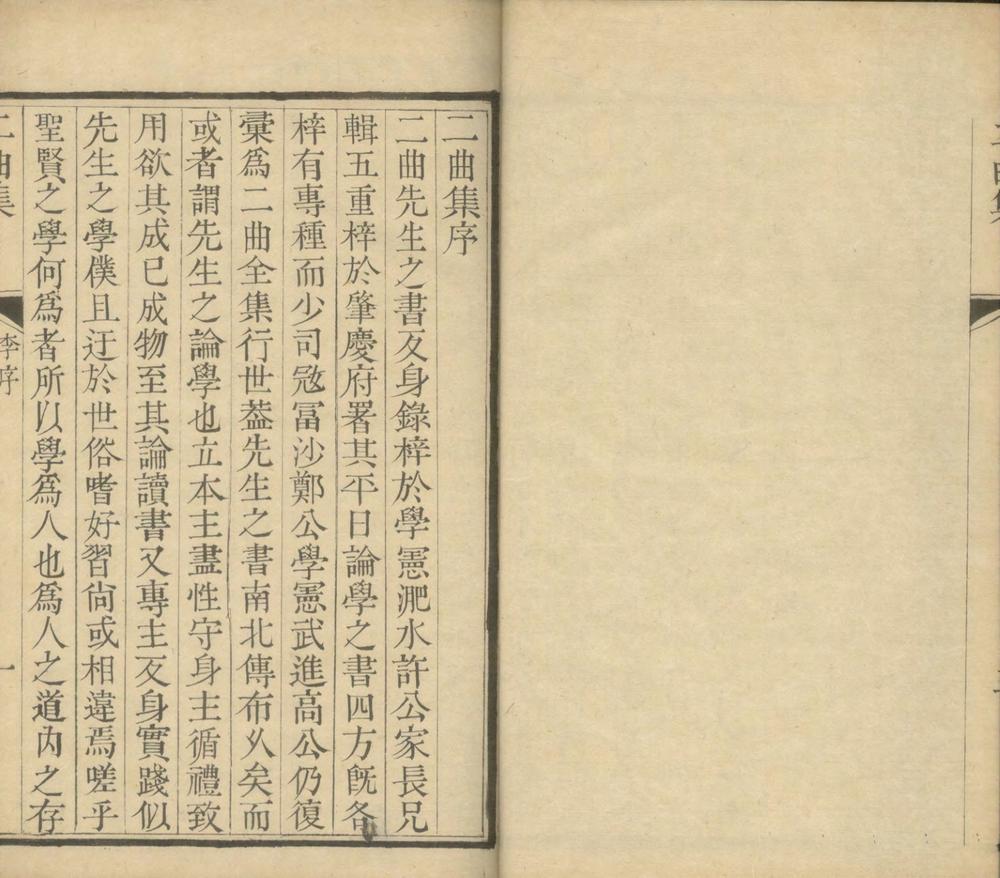 二曲集序
二曲先生之書反身錄梓於學憲淝水許公家長兄
輯五重梓於肇慶府署其平日論學之書四方旣各
梓有專種而少司宼冨沙鄭公學憲武進高公仍復
彙爲二曲全集行世葢先生之書南北傳布乆矣而
或者謂先生之論學也立本主盡性守身主循禮致
用欲其成已成物至其論讀書又專主反身實踐似
先生之學僕且迂於世俗嗜好習尙或相違焉嗟乎
聖賢之學何爲者所以學爲人也爲人之道內之存
二曲集
李序
一